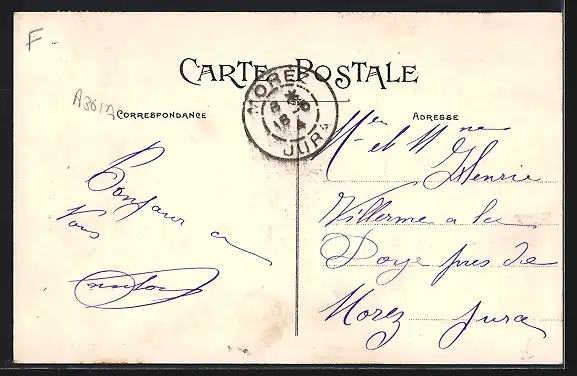 F
A361A
CARTE POSTALE
MOREZ
JURA
CORRESPONDANCE
ADRESSE
Bonjour a
Vous
Mr et Mme
Henrie
Villerme a la
Doye pres de
Morez Jura